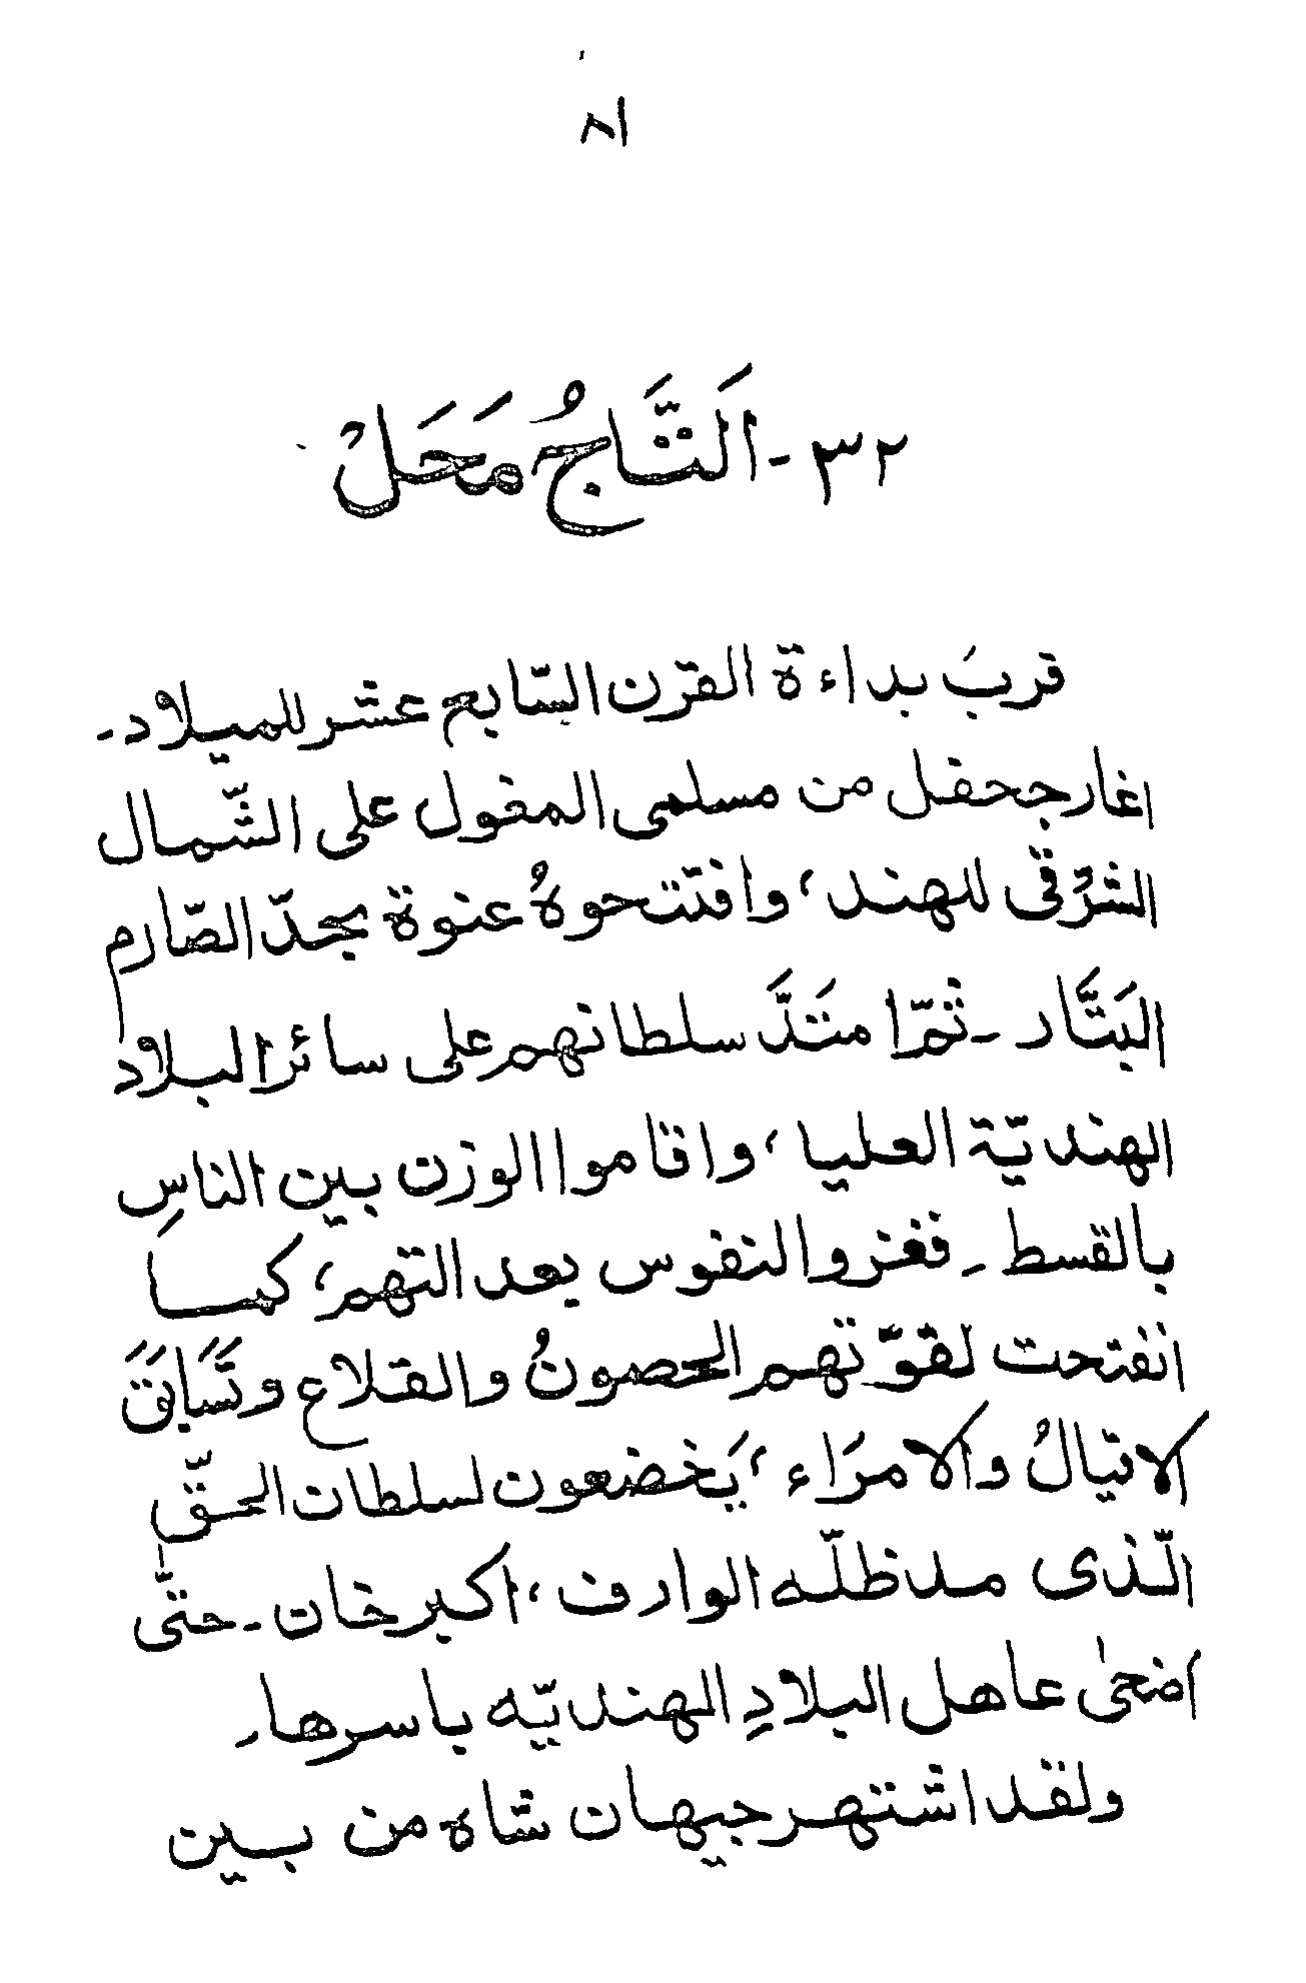 ٨١
٣٢ - اَلتَّاجُ مَحَلْ
قربَ بداءة القرن السّابع عشر للميلاد -
اغار جحفل من مسلمى المغول على الشّمال
الشرّقى للهند، وافتتحوهُ عنوة بحدّ الصّارم
البَتَّار - ثمّ امتَدَّ سلطانهم على سائر البلاد
الهنديّة العليا، واقاموا الوزن بين الناسِ
بالقسط - فغزوا النفوس بعد التهم، كما
انفتحت لقوّتهم الحصونُ والقلاع وتَسَابَقَ
الاقيالُ والامرَاء، يَخضعون لسلطان الحقّ
الّذى مد ظلّه الوارف، اكبر خان - حتّٰى
اضحىٰ عاهل البلادِ الهنديّه باسرها -
ولقد اشتهر جيهان شاه من بين